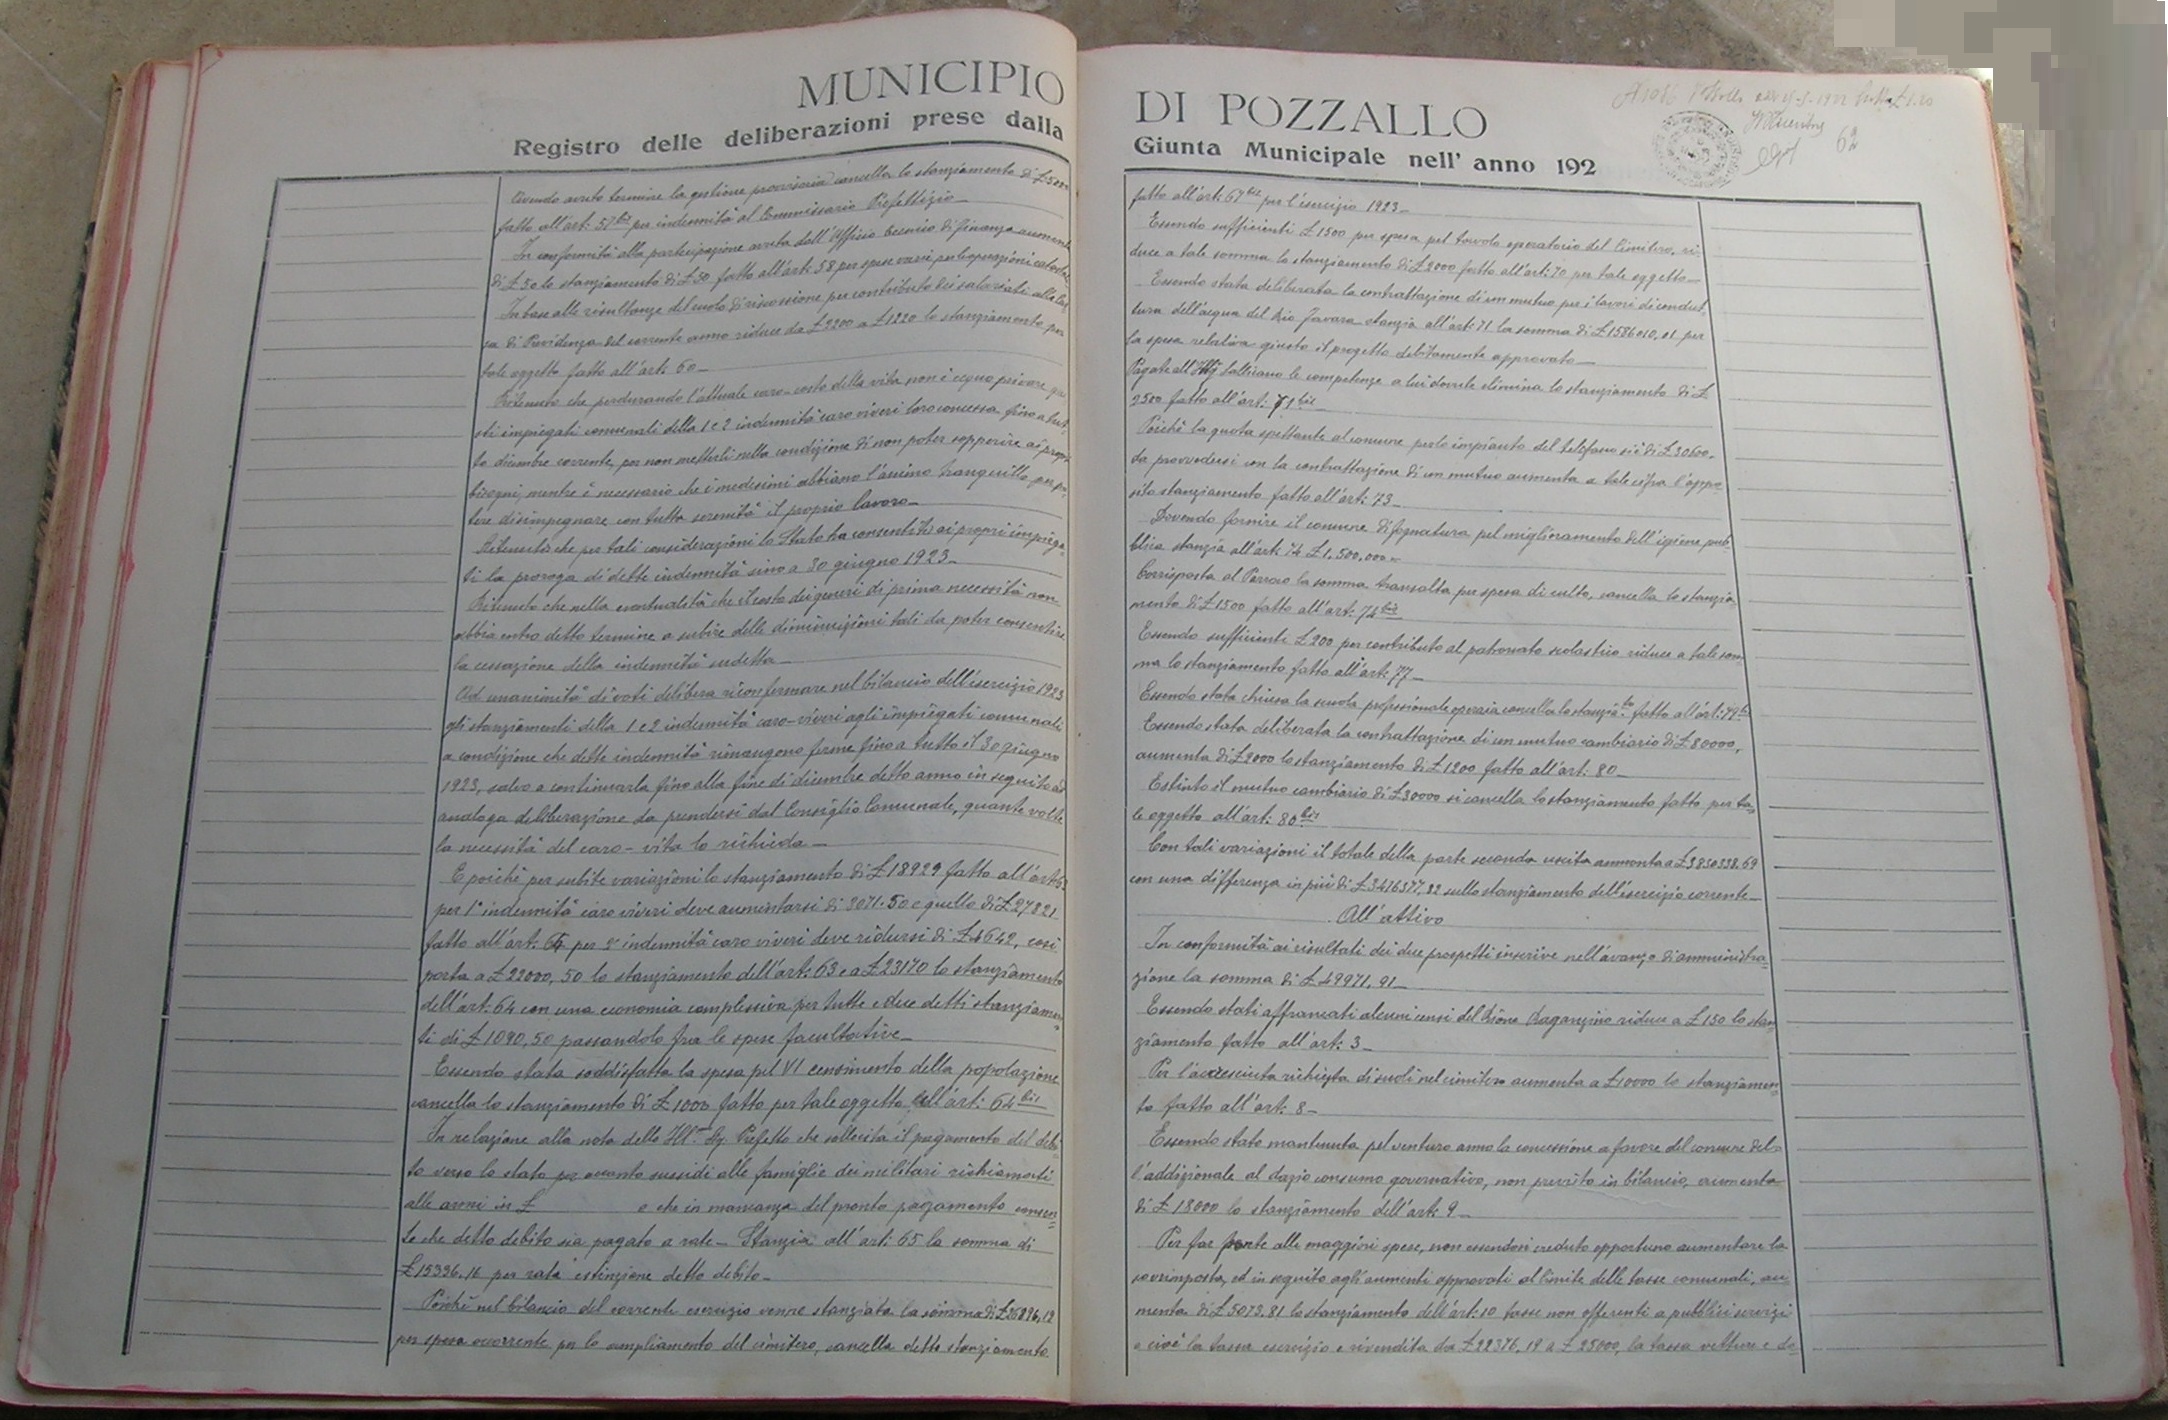 MUNICIPIO
Registro delle deliberazioni prese dalla
Avendo avuto termine la gestione provvisoria cancella lo stanziamento di £ 5000
fatto all'art: 57 bis per indennità al Commissario Prefettizio_
In conformità alla partecipazione avuta dall'Ufficio tecnico di finanza aumenta
di £ 50 lo stanziamento di £ 50 fatto all'art: 58 per spese varie per le operazioni catastali
In base alle risultanze del ruolo di riscossione per contributo dei salariati alla Cas
sa di Previdenza del corrente anno riduce da £ 2200 a £ 1220 lo stanziamento per
tale oggetto fatto all'art: 60_
Ritenuto che perdurando l'attuale caro-costo della vita non è equo privare que
sti impiegati comunali della 1 e 2 indennità caro viveri loro concessa fino a tut-
to dicembre corrente, per non metterli nella condizione di non poter sopperire ai propri
bisogni, mentre è necessario che i medesimi abbiano l'animo tranquillo per po-
tere disimpegnare con tutta serenità il proprio lavoro_
Ritenuto che per tali considerazioni lo Stato ha consentito ai propri impiega-
ti la proroga di dette indennità sino a 30 giugno 1923_
Ritenuto che nella eventualità che il costo dei generi di prima necessità non
abbia entro detto termine a subire delle diminuzioni tali da poter consentire
la cessazione della indennità sudetta_
Ad unanimità di voti delibera riconfermare nel bilancio dell'esercizio 1923
gli stanziamenti della 1 e 2 indennità caro-viveri agli impiegati comunali
a condizione che dette indennità rimangono ferme fino a tutto il 30 giugno
1923, salvo a continuarla fino alla fine di dicembre detto anno in seguito ad
analoga deliberazione da prendersi dal Consiglio Comunale, quante volte
la necessità del caro-vita lo richieda_
E poichè per subite variazioni lo stanziamento di £ 18929 fatto all'art:
per 1ª indennità caro viveri deve aumentarsi di 3071.50 e quello di £ 27821
fatto all'art. 64 per 2ª indennità caro viveri deve ridursi di £ 4642, così
porta a £ 22000,50 lo stanziamento dell'art: 63 e a £ 23170 lo stanziamento
dell'art: 64 con una economia complessiva per tutte e due detti stanziamen=
ti di £ 1090,50 passandolo fra le spese facultative_
Essendo stata soddisfatta la spesa pel VI censimento della popolazione
cancella lo stanziamento di £ 1000 fatto per tale oggetto all'art: 64 bis
In relazione alla nota dello Ill.mo Sig. Prefetto che sollecita il pagamento del debi-
to verso lo stato per quanto sussidi alle famiglie dei militari richiamati
alle armi in £ e che in mancanza del pronto pagamento consen=
te che detto debito sia pagato a rate_ Stanzia all'art: 65 la somma di
£ 15396.16 per rata estinzione detto debito_
Poichè nel bilancio del corrente esercizio venne stanziata la somma di £ 26896,12
per spesa occorrente per lo ampliamento del cimitero, cancella detto stanziamento
DI POZZALLO
Giunta Municipale nell' anno 192
62
fatto all'art: 67 bis per l'esercizio 1923_
Essendo sufficienti £ 1500 per spesa pel tavolo operatorio del Cimitero, ri-
duce a tale somma lo stanziamento di £ 2000 fatto all'art: 70 per tale oggetto_
Essendo stata deliberata la contrattazione di un mutuo per i lavori di condut
tura dell'acqua del Rio Favara stanzia all'art: 71 la somma di £ 1586010,01 per
la spesa relativa giusto il progetto debitamente approvato_
Pagate all'Ing Sallicano le competenze a lui dovute elimina lo stanziamento di £
2500 fatto all'art: 71 bis
Poichè la quota spettante al comune per lo impianto del telefono si è di £ 30600.
da provvedersi con la contrattazione di un mutuo aumenta a tale cifra l'appo-
sito stanziamento fatto all'art: 73_
Dovendo fornire il comune di fognatura pel miglioramento dell'igiene pub-
blica stanzia all'art: 74 £ 1.500.000=
Corrisposta al Parroco la somma transatta per spesa di culto, cancella lo stanzia
mento di £ 1500 fatto all'art: 74 bis
Essendo sufficienti £ 200 per contributo al patronato scolastico riduce a tale som
ma lo stanziamento fatto all'art: 77_
Essendo stata chiusa la scuola professionale operaia cancella lo stanzia.to fatto all'art: 79 bis
Essendo stata deliberata la contrattazione di un mutuo cambiario di £ 80000,
aumenta di £ 2000 lo stanziamento di £ 1200 fatto all'art: 80_
Estinto il mutuo cambiario di £ 30000 si cancella lo stanziamento fatto per ta-
le oggetto all'art: 80 bis
Con tali variazioni il totale della parte seconda uscita aumenta a £ 3850338.69
con una differenza in più di £ 3416377,22 sullo stanziamento dell'esercizio corrente_
All'attivo
In conformità ai risultati dei due prospetti inscrive nell'avanzo di amministra=
zione la somma di £ 49971,91_
Essendo stati affrancati alcuni censi del Rione Raganzino riduce a £ 150 lo stan
ziamento fatto all'art: 3_
Per l'accresciuta richiesta di suoli nel cimitero aumenta a £ 10000 lo stanziamen=
to fatto all'art: 8_
Essendo stato mantenuta pel venturo anno la concessione a favore del comune del=
l'addizionale al dazio consumo governativo, non previsto in bilancio, aumenta
di £ 18000 lo stanziamento dell'art: 9_
Per far fronte alle maggiori spese, non essendosi creduto opportuno aumentare la
sovrimposta, ed in seguito agli aumenti approvati al limite delle tasse comunali, au
menta di £ 5073.81 lo stanziamento dell'art: 10 tasse non afferenti a pubblici servizi
e cioè la tassa esercizio e rivendita da £ 22376,19 a £ 25000, la tassa vetture e do=